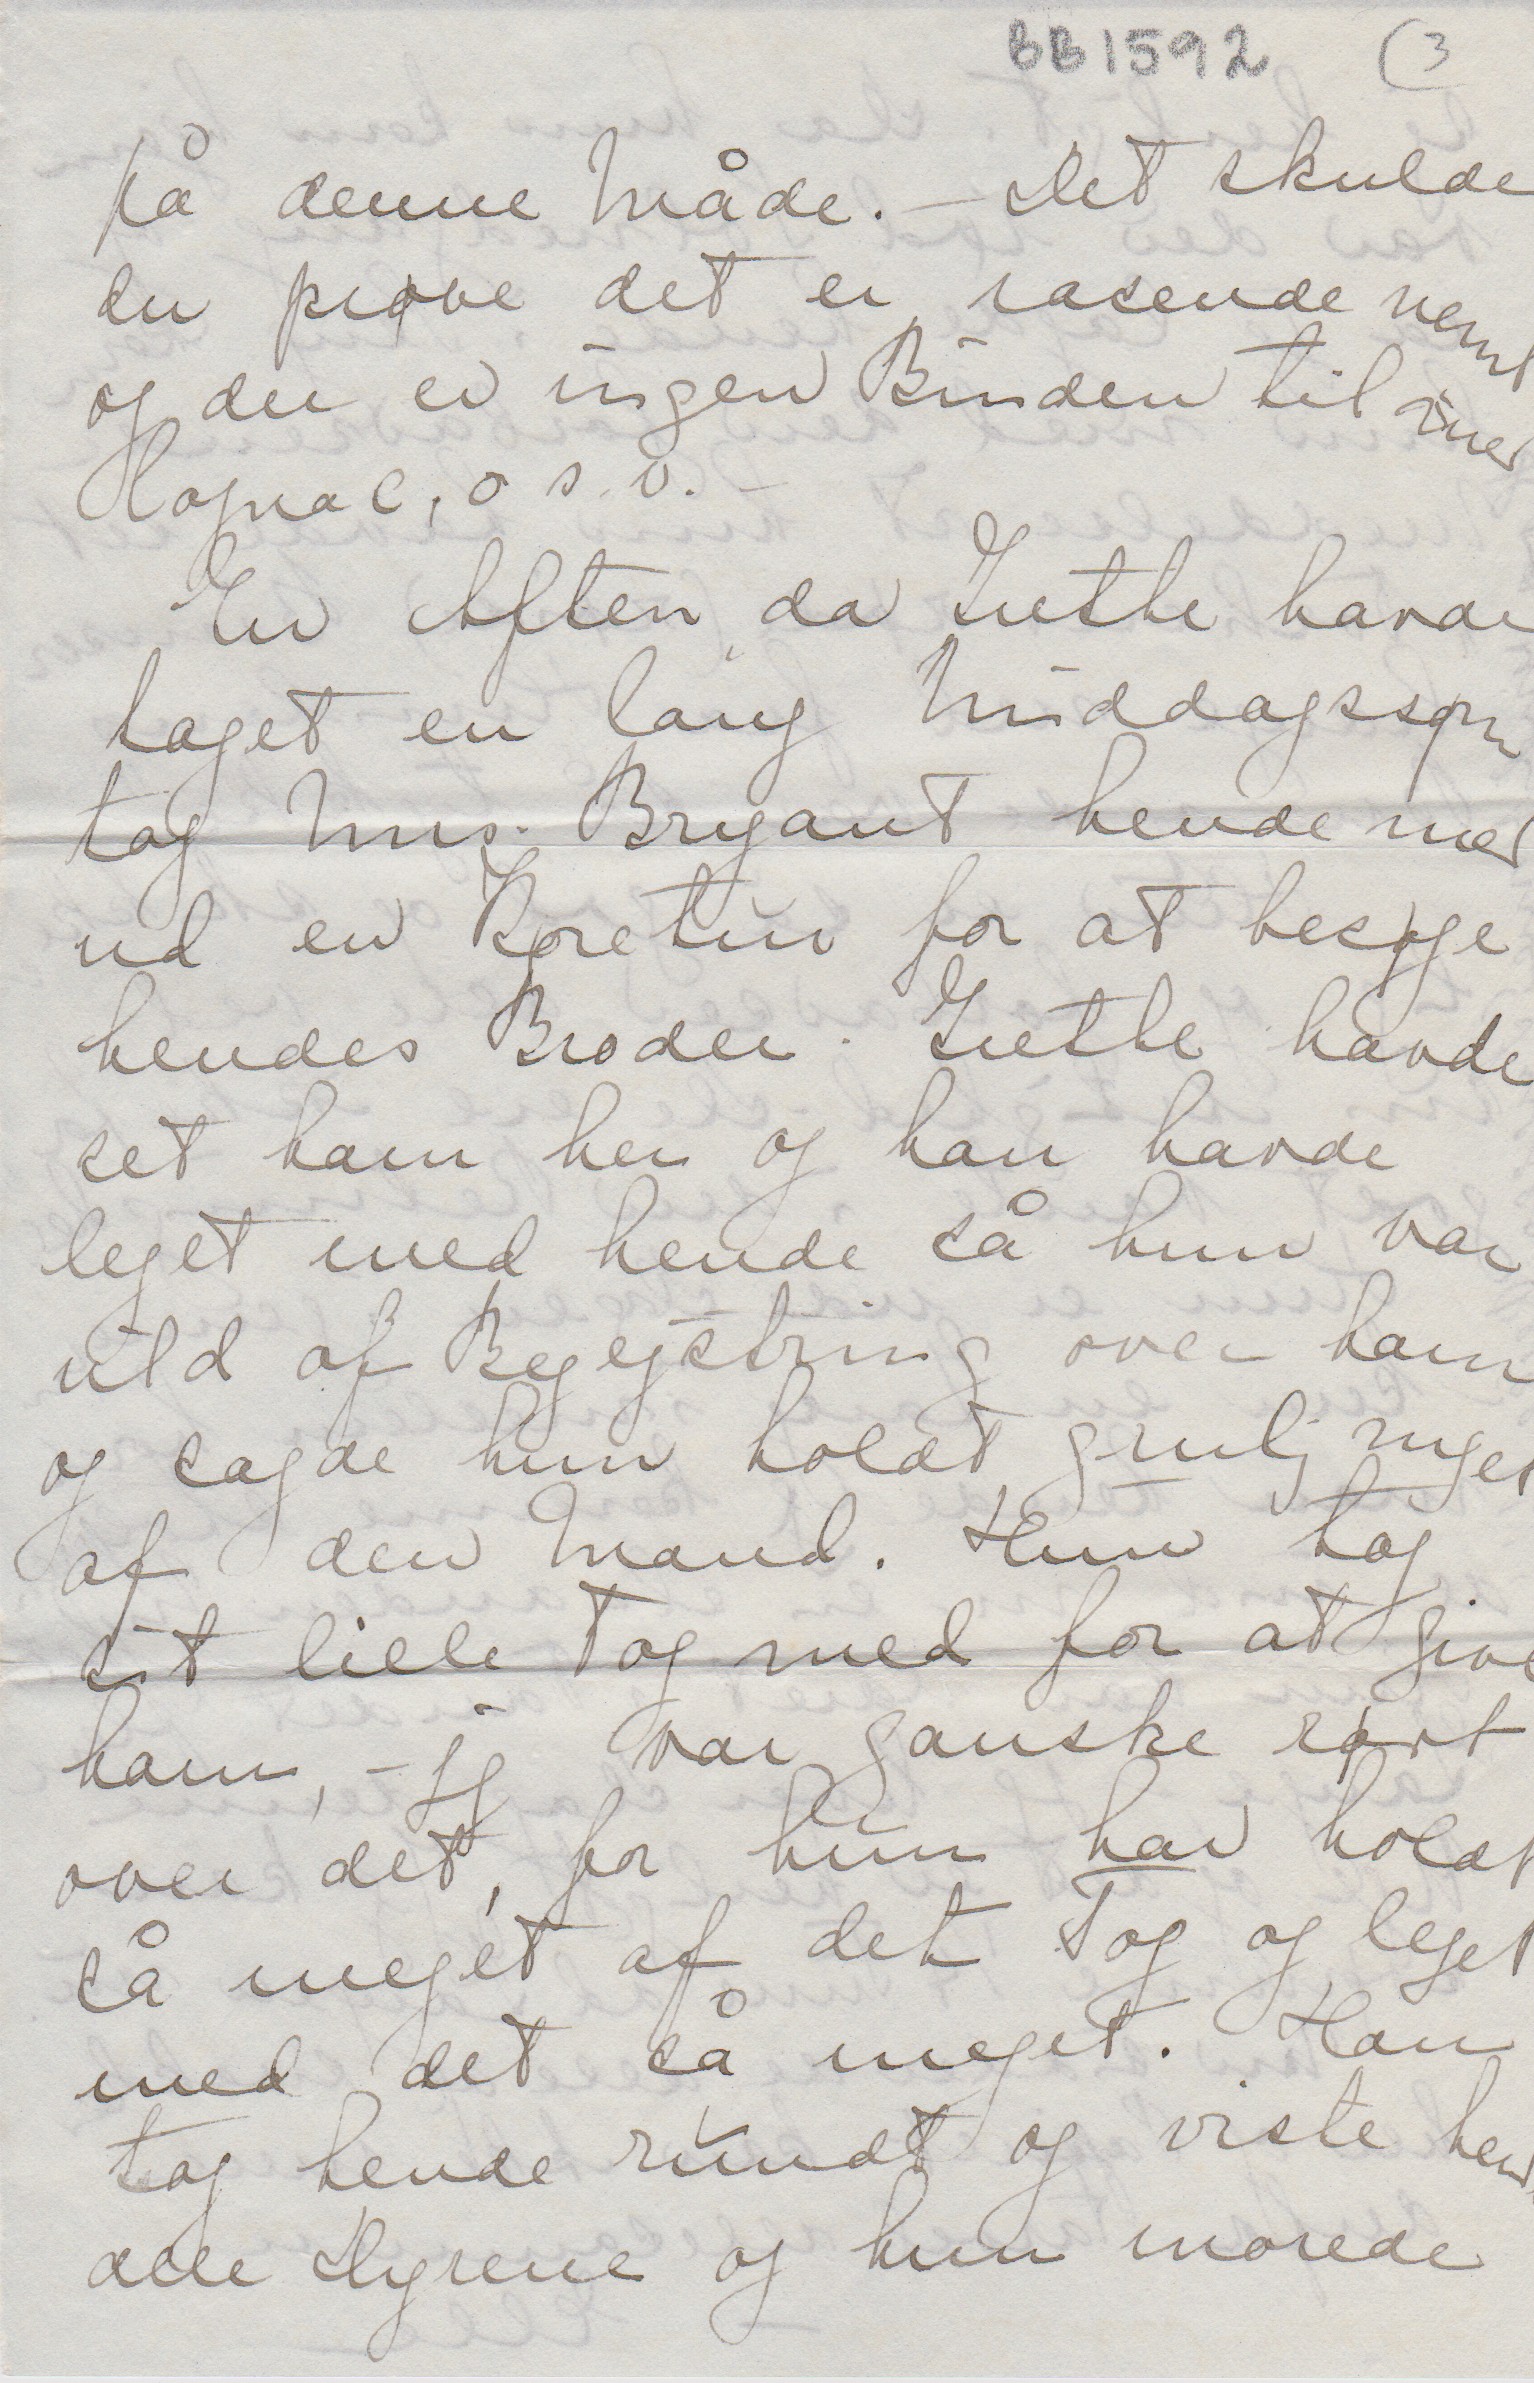 BB1592 (3
på denne Måde. – Det skulde
du prøve det er rasende nemt
og der er ingen Binden til med
Cognac, o s. v. –
En Aften, da Grethe havde
taget en lang Middagssøvn
tog Mrs. Bryant hende med
ud en Køretur for at besøge
hendes Broder. Grethe havde
set ham her og han havde
leget med hende så hun var
vild af Begejstring over ham
og sagde hun holdt grulig meget
af den Mand. Hun tog
sit lille Tog med for at give
ham, – jeg var ganske rørt
over det, for hun har holdt
så meget af det Tog og leget
med det så meget. Han
tog hende rundt og viste hende
alle Dyrene og hun morede